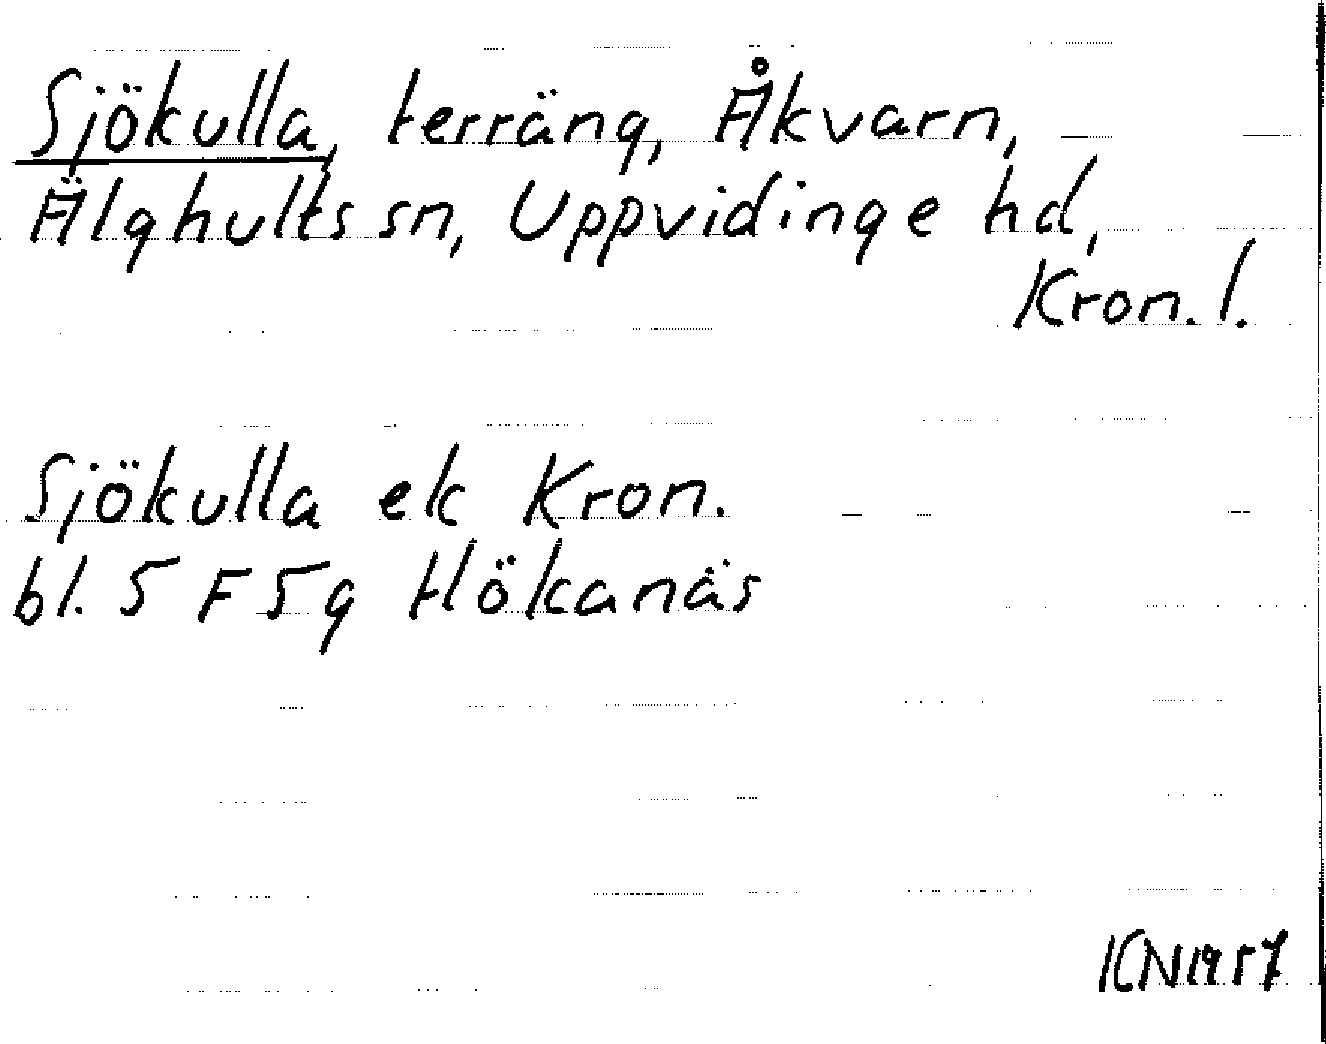 Sjökulla, terräng, Åkvarn,
Älghults sn, Uppvidinge hd,
Kron. l.
Sjökulla ek Kron.
bl. 5 F 5 g Hökanäs
KN 1957